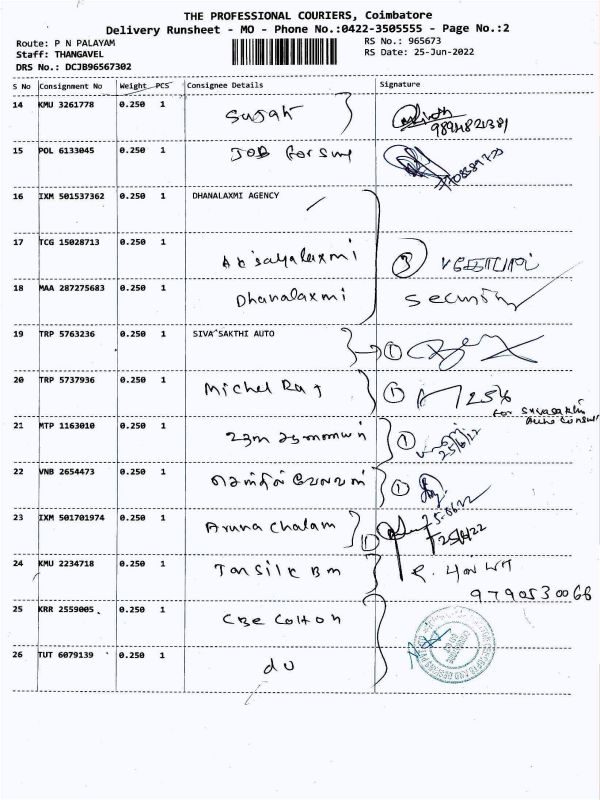 THE PROFESSIONAL COURIERS, Coimbatore
Delivery Runsheet - MO - Phone No.:0422-3505555 - Page No.:2
Route: P N PALAYAM
Staff: THANGAVEL
DRS No.: DCJB96567302
RS No.: 965673
RS Date: 25-Jun-2022
S No Consignment No Weight PCS Consignee Details Signature
14 KMU 3261778 0.250 1
15 POL 6133045 0.250 1 JOB
16 IXM 501537362 0.250 1 DHANALAXMI AGENCY
17 TCG 15028713 0.250 1 3
18 MAA 287275683 0.250 1 Dhanalaxmi Security
19 TRP 5763236 0.250 1 SIVA SAKTHI AUTO 1
20 TRP 5737936 0.250 1 Michel Raj 1
for
21 MTP 1163010 0.250 1 1
25/6/22
22 VNB 2654473 0.250 1 செந்தில் வேலவன் 1
23 IXM 501701974 0.250 1 Arunachalam 1
24 KMU 2234718 0.250 1
9790530066
25 KRR 2559005 0.250 1 CBE Cotton
26 TUT 6079139 0.250 1 do